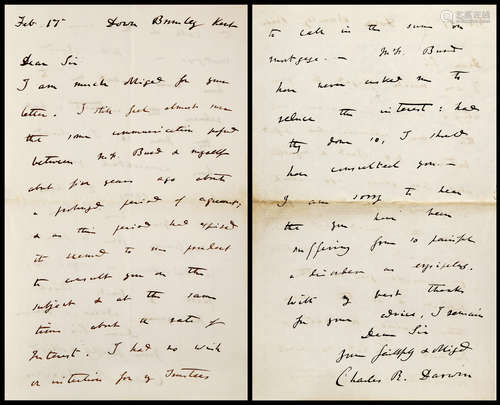 Feb. 17 Down Bromley Kent
Dear Sir
I am much obliged for your
letter. I still feel almost sure
the some communication passed
between Mr Bund & myself
about five years ago about
a prolonged period of agreement,
& as this period had expired
it seemed to me prudent
to consult you on the
subject & at the same
time about the rate of
Interest. I had no wish
or intention for my Trustees
to call in the sum on
mortgage. — Mr Bund
have never asked me to
reduce the interest: had
they done so, I should
have consulted you. —
I am sorry to hear
that you have been
suffering from so painful
a disorder as erysipelas.
With my best thanks
for your advice, I remain
Dear Sir
yours faithfully & obliged
Charles R. Darwin